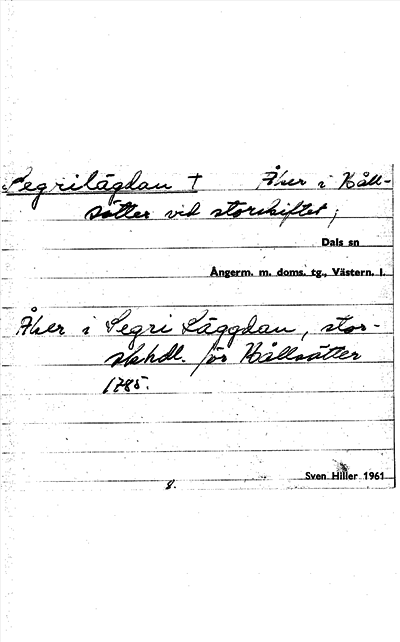 Segrilägdan † Åker i Håll-
sätter vid storskiftet;
Dals sn
Ångerm. m. doms. tg., Västern. l.
Åker i Segri Läggdan, stor-
skhdl. för Hållsätter
1785.
8.
Sven Hiller 1961